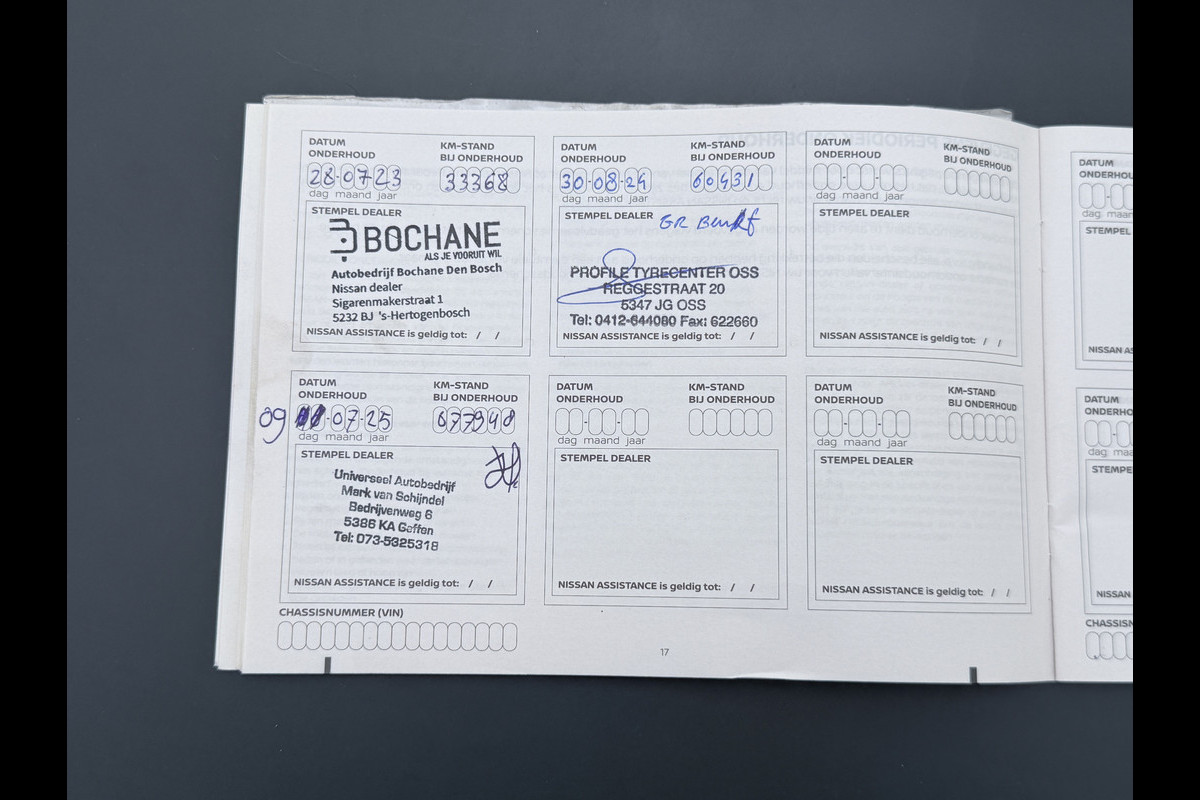 DATUM ONDERHOUD
KM-STAND BIJ ONDERHOUD
28-07-23
33368
dag maand jaar
STEMPEL DEALER
BOCHANE
ALS JE VOORUIT WIL
Autobedrijf Bochane Den Bosch
Nissan dealer
Sigarenmakerstraat 1
5232 BJ 's-Hertogenbosch
NISSAN ASSISTANCE is geldig tot: / /
DATUM ONDERHOUD
KM-STAND BIJ ONDERHOUD
30-08-24
60431
dag maand jaar
STEMPEL DEALER
GR Beurt
PROFILE TYRECENTER OSS
REGGESTRAAT 20
5347 JG OSS
Tel: 0412-644080 Fax: 622660
NISSAN ASSISTANCE is geldig tot: / /
DATUM ONDERHOUD
KM-STAND BIJ ONDERHOUD
dag maand jaar
STEMPEL DEALER
NISSAN ASSISTANCE is geldig tot: / /
DATUM
dag
STEMPEL
NISSAN
DATUM ONDERHOUD
KM-STAND BIJ ONDERHOUD
09
-07-25
677948
dag maand jaar
STEMPEL DEALER
Universeel Autobedrijf
Mark van Schijndel
Bedrijvenweg 6
5386 KA Geffen
Tel: 073-5325318
NISSAN ASSISTANCE is geldig tot: / /
DATUM ONDERHOUD
KM-STAND BIJ ONDERHOUD
dag maand jaar
STEMPEL DEALER
NISSAN ASSISTANCE is geldig tot: / /
DATUM ONDERHOUD
KM-STAND BIJ ONDERHOUD
dag maand jaar
STEMPEL DEALER
NISSAN ASSISTANCE is geldig tot: / /
DATUM
dag
NISSAN
CHASSISNUMMER (VIN)
17